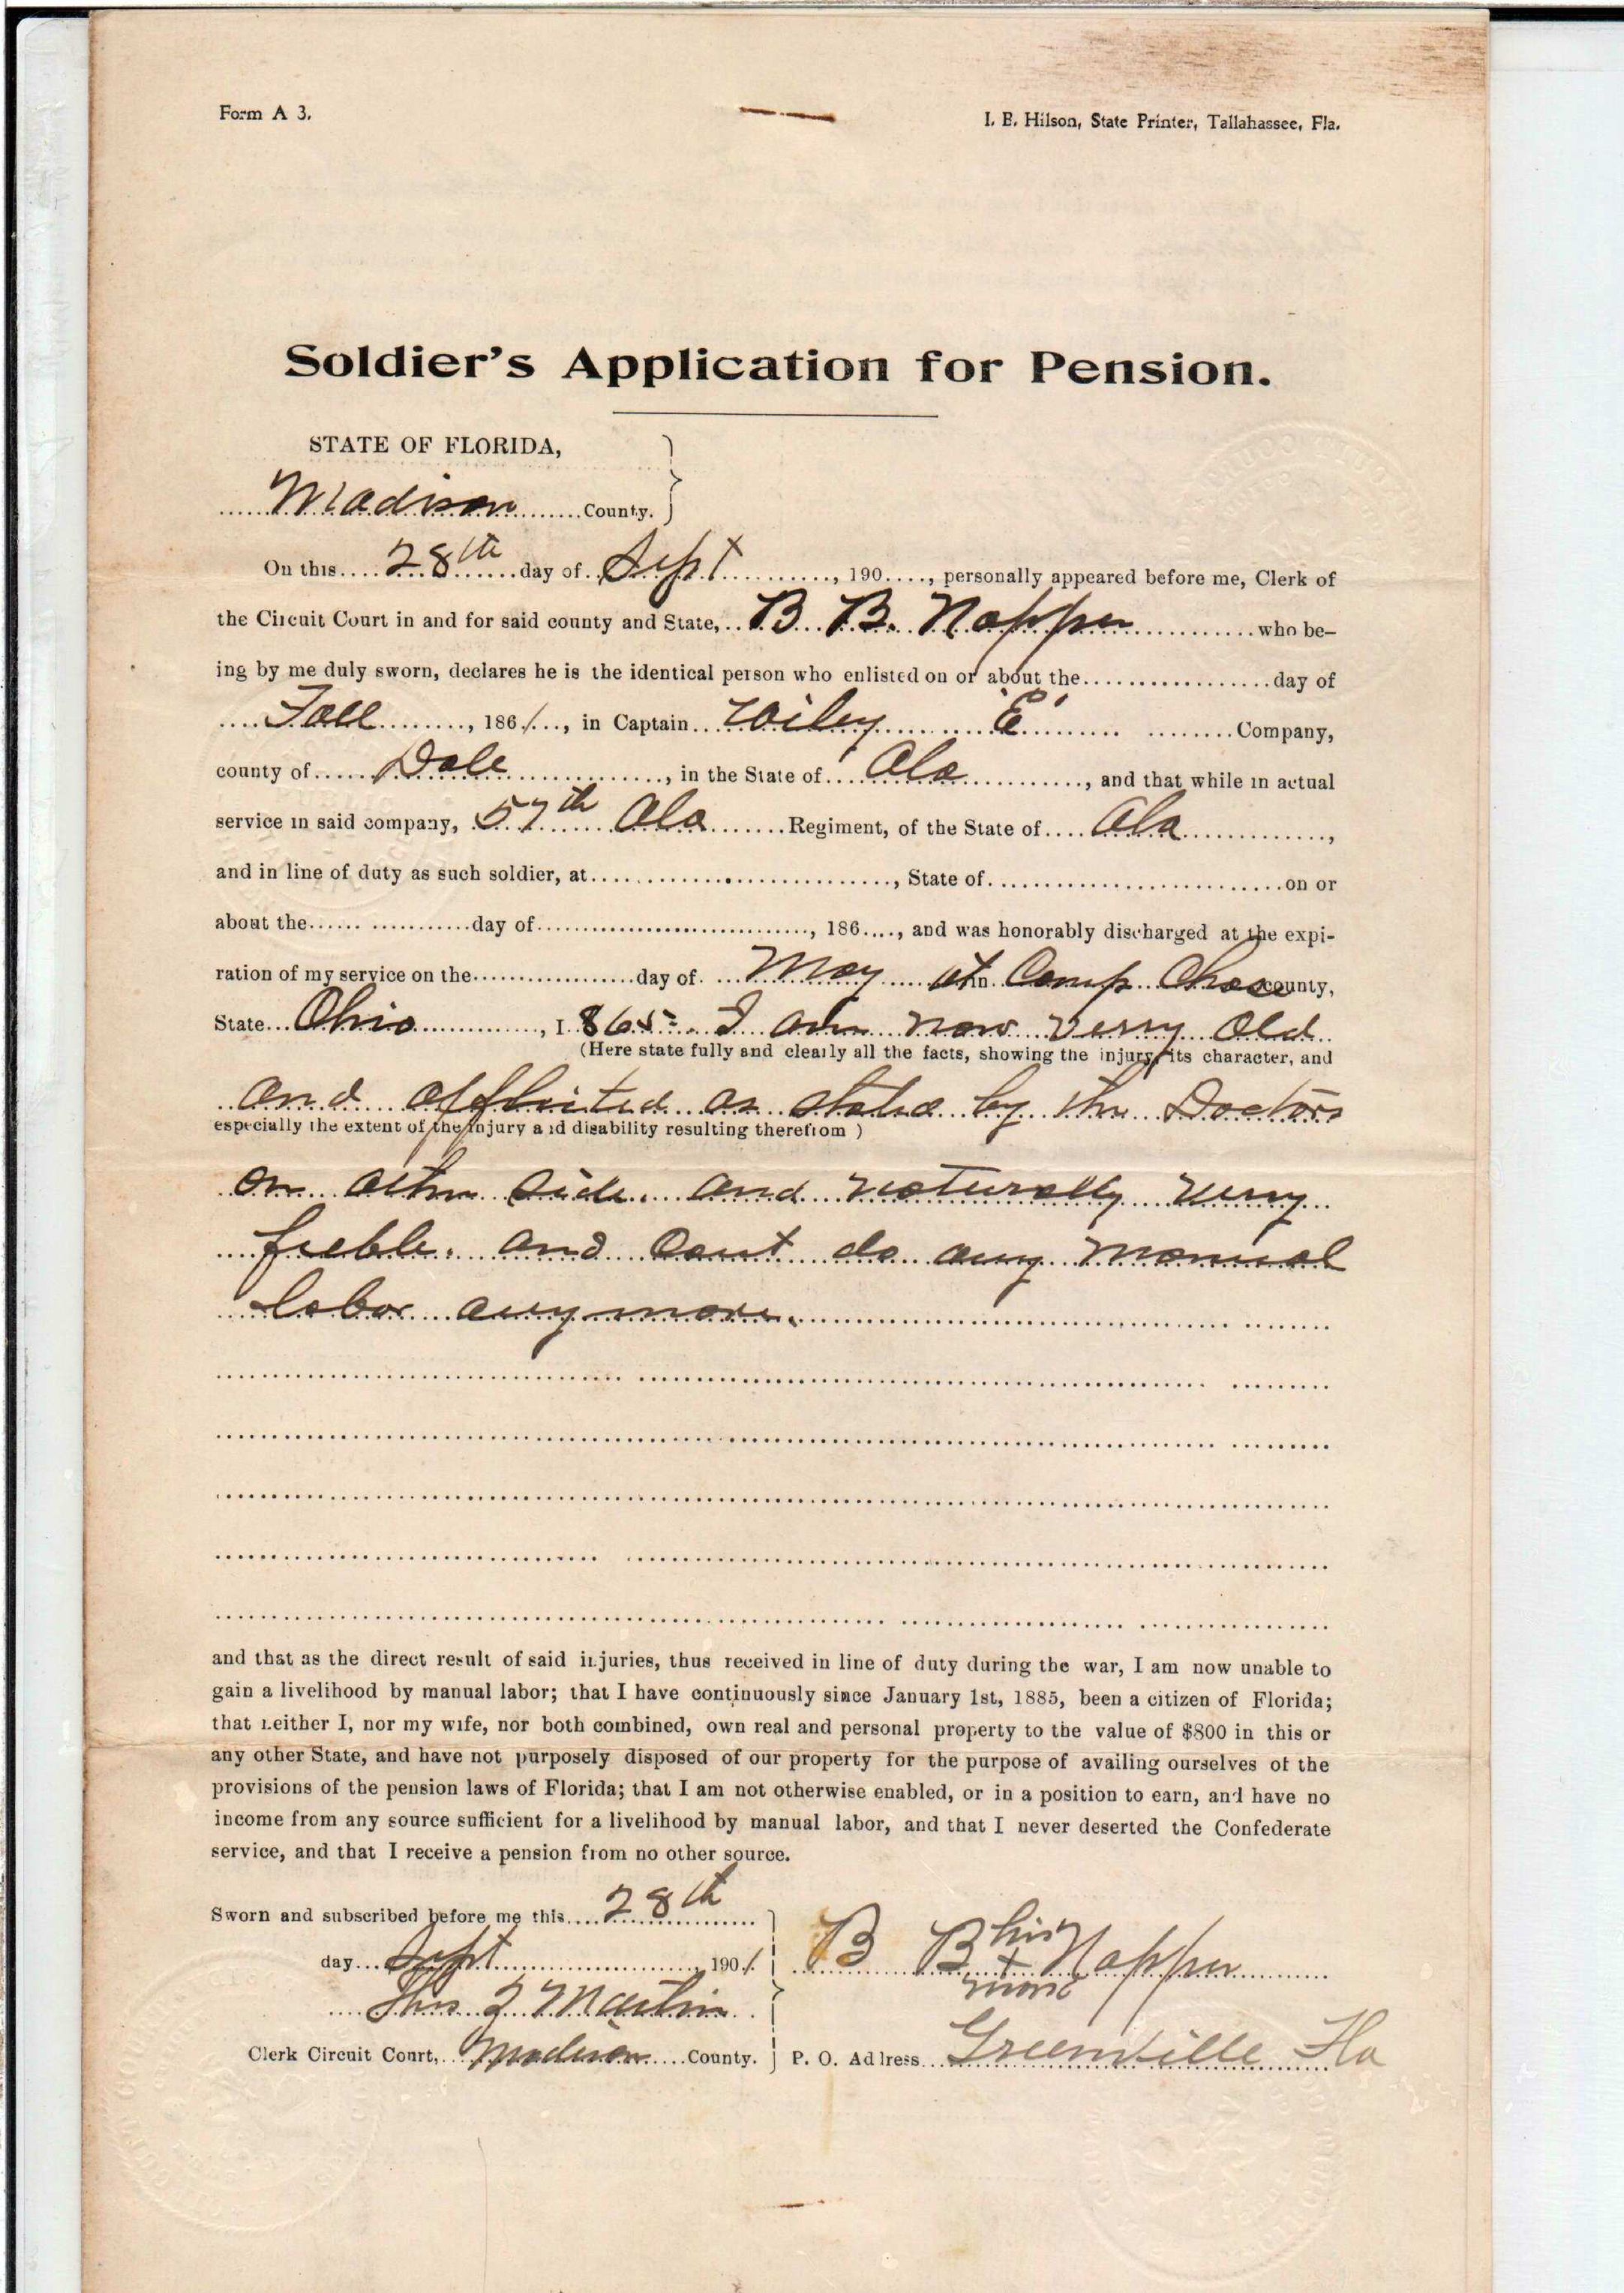 Form A 3.
I. B. Hilson, State Printer, Tallahassee, Fla.
Soldier's Application for Pension.
STATE OF FLORIDA,
Madison County.
On this 28th day of Sept, 190...., personally appeared before me, Clerk of
the Circuit Court in and for said county and State, B B. Napper who be-
ing by me duly sworn, declares he is the identical person who enlisted on or about the day of
Fall, 1861, in Captain Wiley 'E' Company,
county of Dale, in the State of Ala, and that while in actual
service in said company, 57th Ala Regiment, of the State of Ala,
and in line of duty as such soldier, at, State of on or
about the day of, 186...., and was honorably discharged at the expi-
ration of my service on the day of May at in Camp Chase county,
State Ohio, 1865- I am now verry old
(Here state fully and clearly all the facts, showing the injury, its character, and
and afflicted as stated by the Doctors
especially the extent of the injury and disability resulting therefrom)
on other side. and naturally verry
feeble. and cant do any manual
labor any more.
and that as the direct result of said injuries, thus received in line of duty during the war, I am now unable to
gain a livelihood by manual labor; that I have continuously since January 1st, 1885, been a citizen of Florida;
that neither I, nor my wife, nor both combined, own real and personal property to the value of $800 in this or
any other State, and have not purposely disposed of our property for the purpose of availing ourselves of the
provisions of the pension laws of Florida; that I am not otherwise enabled, or in a position to earn, and have no
income from any source sufficient for a livelihood by manual labor, and that I never deserted the Confederate
service, and that I receive a pension from no other source.
Sworn and subscribed before me this 28th
day Sept, 1901
B B his x mark Napper
Martin
Clerk Circuit Court, Madison County.
P. O. Address Greenville Fla